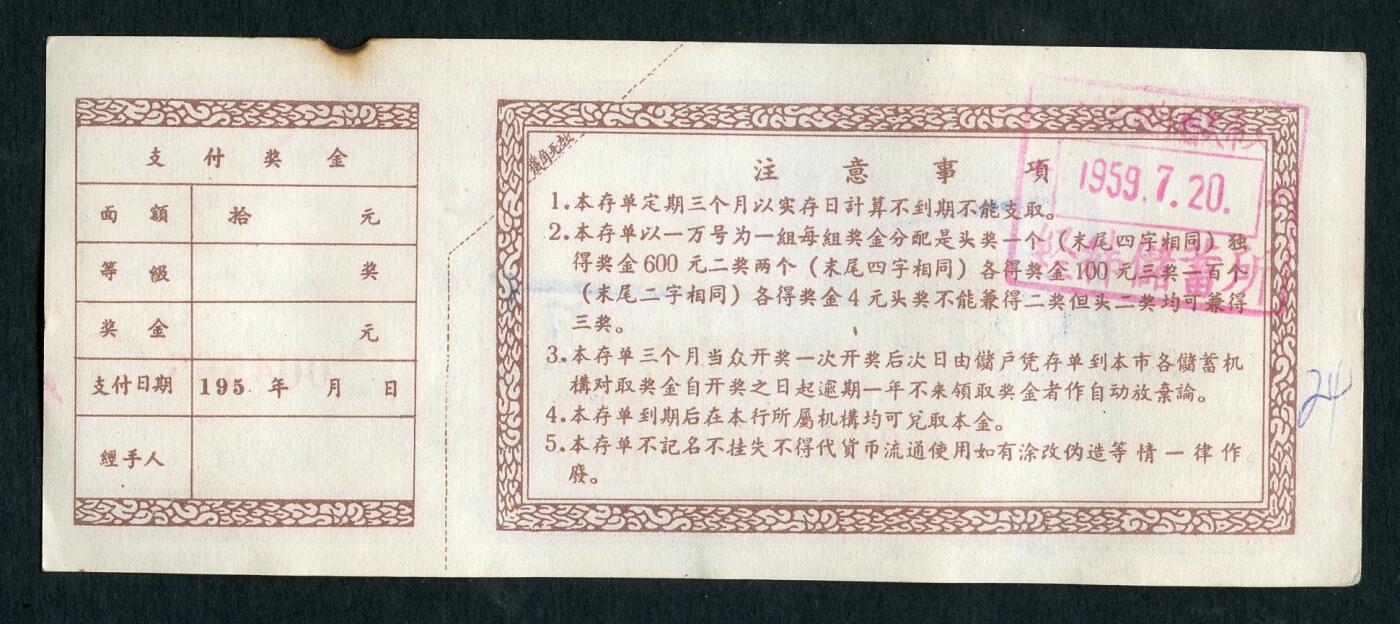 支付奖金
面額 拾 元
等級 奖
奖金 元
支付日期 195 年 月 日
經手人
注意事項
1.本存单定期三个月以实存日計算不到期不能支取。
2.本存单以一万号为一組每組奖金分配是头奖一个（末尾四字相同）独
得奖金600元二奖两个（末尾四字相同）各得奖金100元三奖一百个
（末尾二字相同）各得奖金4元头奖不能兼得二奖但头二奖均可兼得
三奖。
3.本存单三个月当众开奖一次开奖后次日由儲戶凭存单到本市各儲蓄机
構对取奖金自开奖之日起逾期一年不来領取奖金者作自动放棄論。
4.本存单到期后在本行所屬机構均可兌取本金。
5.本存单不記名不挂失不得代貨币流通使用如有涂改伪造等情一律作
廢。
1959.7.20.
24